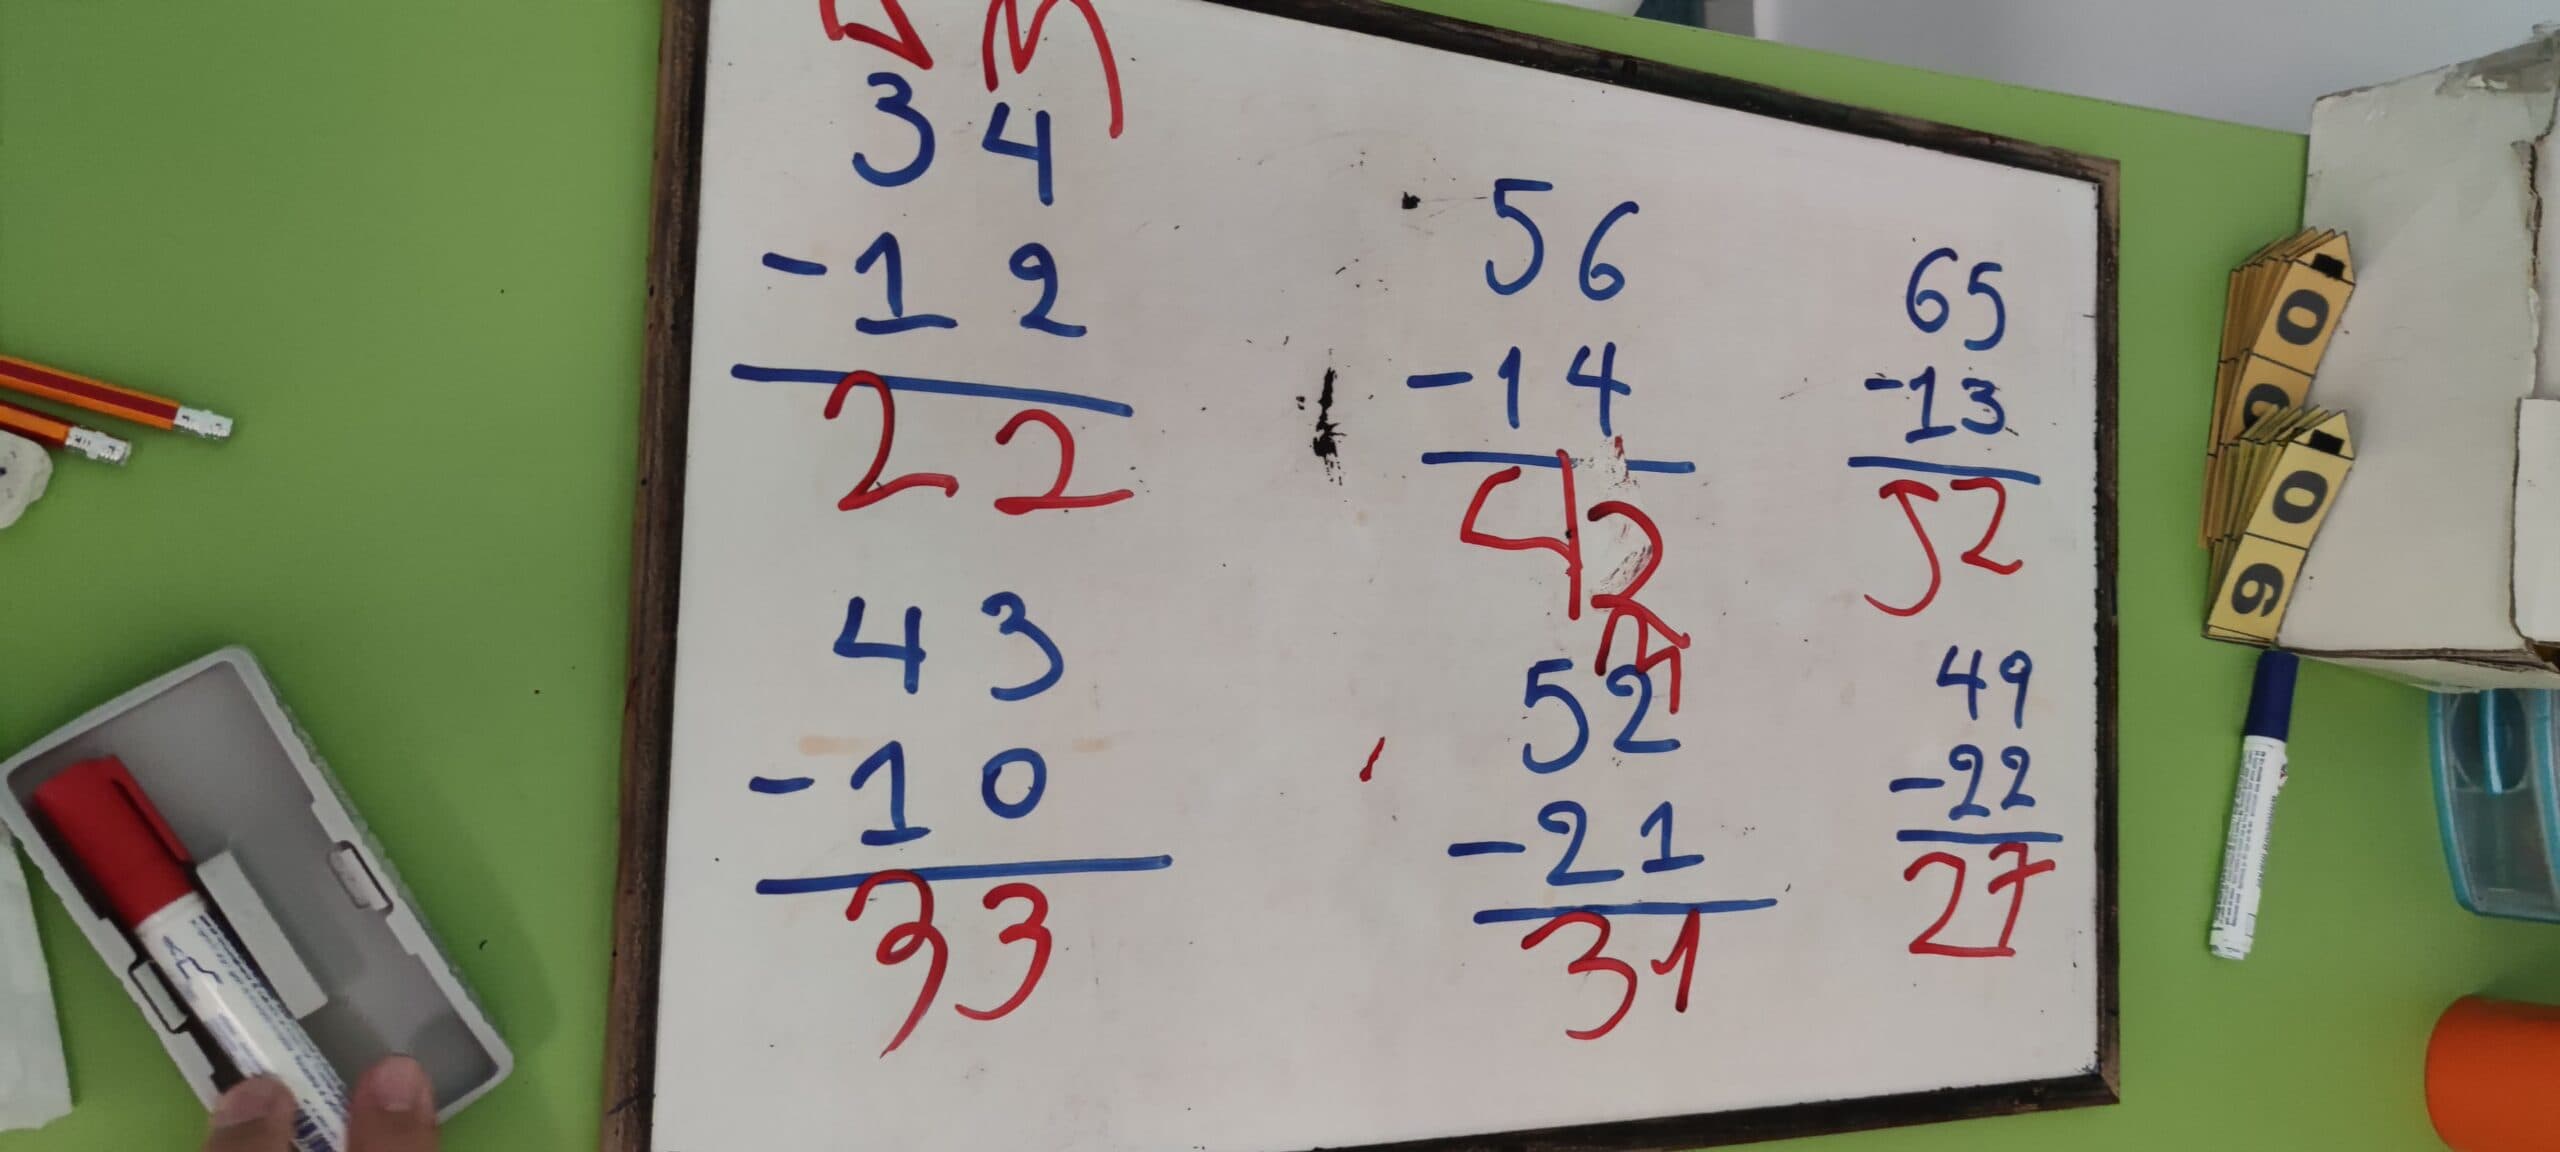 34
-12
22
56
-14
42
65
-13
52
43
-10
33
52
-21
31
49
-22
27
0
0
0
6